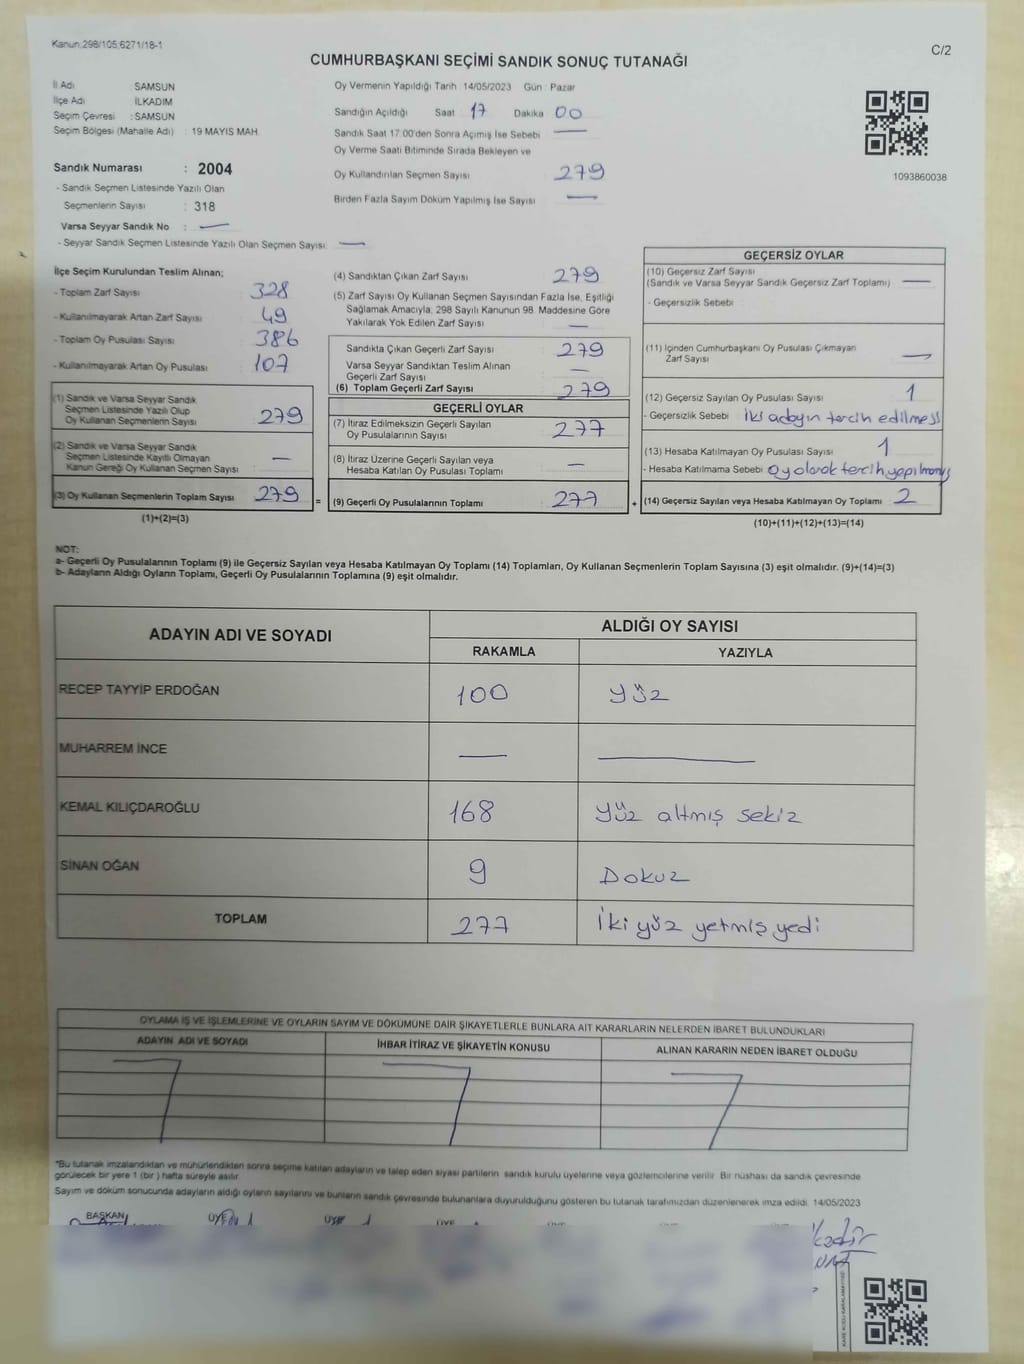 Kanun:298/105;6271/18-1
C/2
CUMHURBAŞKANI SEÇİMİ SANDIK SONUÇ TUTANAĞI
İl Adı : SAMSUN
İlçe Adı : İLKADIM
Seçim Çevresi : SAMSUN
Seçim Bölgesi (Mahalle Adı) : 19 MAYIS MAH.
Sandık Numarası : 2004
- Sandık Seçmen Listesinde Yazılı Olan
Seçmenlerin Sayısı : 318
Varsa Seyyar Sandık No : —
- Seyyar Sandık Seçmen Listesinde Yazılı Olan Seçmen Sayısı : —
Oy Vermenin Yapıldığı Tarih : 14/05/2023 Gün : Pazar
Sandığın Açıldığı Saat 17 Dakika 00
Sandık Saat 17:00'den Sonra Açımış İse Sebebi —
Oy Verme Saati Bitiminde Sırada Bekleyen ve
Oy Kullandırılan Seçmen Sayısı 279
Birden Fazla Sayım Döküm Yapılmış İse Sayısı —
1093860038
İlçe Seçim Kurulundan Teslim Alınan;
- Toplam Zarf Sayısı : 328
- Kullanılmayarak Artan Zarf Sayısı : 49
- Toplam Oy Pusulası Sayısı : 386
- Kullanılmayarak Artan Oy Pusulası : 107
(1) Sandık ve Varsa Seyyar Sandık
Seçmen Listesinde Yazılı Olup
Oy Kullanan Seçmenlerin Sayısı : 279
(2) Sandık ve Varsa Seyyar Sandık
Seçmen Listesinde Kayıtlı Olmayan
Kanun Gereği Oy Kullanan Seçmen Sayısı : —
(3) Oy Kullanan Seçmenlerin Toplam Sayısı : 279
(1)+(2)=(3)
=
(4) Sandıktan Çıkan Zarf Sayısı : 279
(5) Zarf Sayısı Oy Kullanan Seçmen Sayısından Fazla İse, Eşitliği
Sağlamak Amacıyla; 298 Sayılı Kanunun 98. Maddesine Göre
Yakılarak Yok Edilen Zarf Sayısı : —
Sandıkta Çıkan Geçerli Zarf Sayısı : 279
Varsa Seyyar Sandıktan Teslim Alınan
Geçerli Zarf Sayısı : —
(6) Toplam Geçerli Zarf Sayısı : 279
GEÇERLİ OYLAR
(7) İtiraz Edilmeksizin Geçerli Sayılan
Oy Pusulalarının Sayısı : 277
(8) İtiraz Üzerine Geçerli Sayılan veya
Hesaba Katılan Oy Pusulası Toplamı : —
(9) Geçerli Oy Pusulalarının Toplamı : 277
+
GEÇERSİZ OYLAR
(10) Geçersiz Zarf Sayısı
(Sandık ve Varsa Seyyar Sandık Geçersiz Zarf Toplamı) : —
- Geçersizlik Sebebi :
(11) İçinden Cumhurbaşkanı Oy Pusulası Çıkmayan
Zarf Sayısı : —
(12) Geçersiz Sayılan Oy Pusulası Sayısı : 1
- Geçersizlik Sebebi : iki adayın tercih edilmesi
(13) Hesaba Katılmayan Oy Pusulası Sayısı : 1
- Hesaba Katılmama Sebebi : Oy olarak tercih yapılmamış
(14) Geçersiz Sayılan veya Hesaba Katılmayan Oy Toplamı : 2
(10)+(11)+(12)+(13)=(14)
NOT:
a- Geçerli Oy Pusulalarının Toplamı (9) ile Geçersiz Sayılan veya Hesaba Katılmayan Oy Toplamı (14) Toplamları, Oy Kullanan Seçmenlerin Toplam Sayısına (3) eşit olmalıdır. (9)+(14)=(3)
b- Adayların Aldığı Oyların Toplamı, Geçerli Oy Pusulalarının Toplamına (9) eşit olmalıdır.
ADAYIN ADI VE SOYADI ALDIĞI OY SAYISI
RAKAMLA YAZIYLA
RECEP TAYYİP ERDOĞAN 100 Yüz
MUHARREM İNCE — —
KEMAL KILIÇDAROĞLU 168 Yüz altmış sekiz
SİNAN OĞAN 9 Dokuz
TOPLAM 277 İki yüz yetmiş yedi
OYLAMA İŞ VE İŞLEMLERİNE VE OYLARIN SAYIM VE DÖKÜMÜNE DAİR ŞİKAYETLERLE BUNLARA AİT KARARLARIN NELERDEN İBARET BULUNDUKLARI
ADAYIN ADI VE SOYADI İHBAR İTİRAZ VE ŞİKAYETİN KONUSU ALINAN KARARIN NEDEN İBARET OLDUĞU
*Bu tutanak imzalandıktan ve mühürlendikten sonra seçime katılan adayların ve talep eden siyasi partilerin sandık kurulu üyelerine veya gözlemcilerine verilir. Bir nüshası da sandık çevresinde
görülecek bir yere 1 (bir) hafta süreyle asılır.
Sayım ve döküm sonucunda adayların aldığı oyların sayılarını ve bunların sandık çevresinde bulunanlara duyurulduğunu gösteren bu tutanak tarafımızdan düzenlenerek imza edildi. 14/05/2023
BAŞKAN